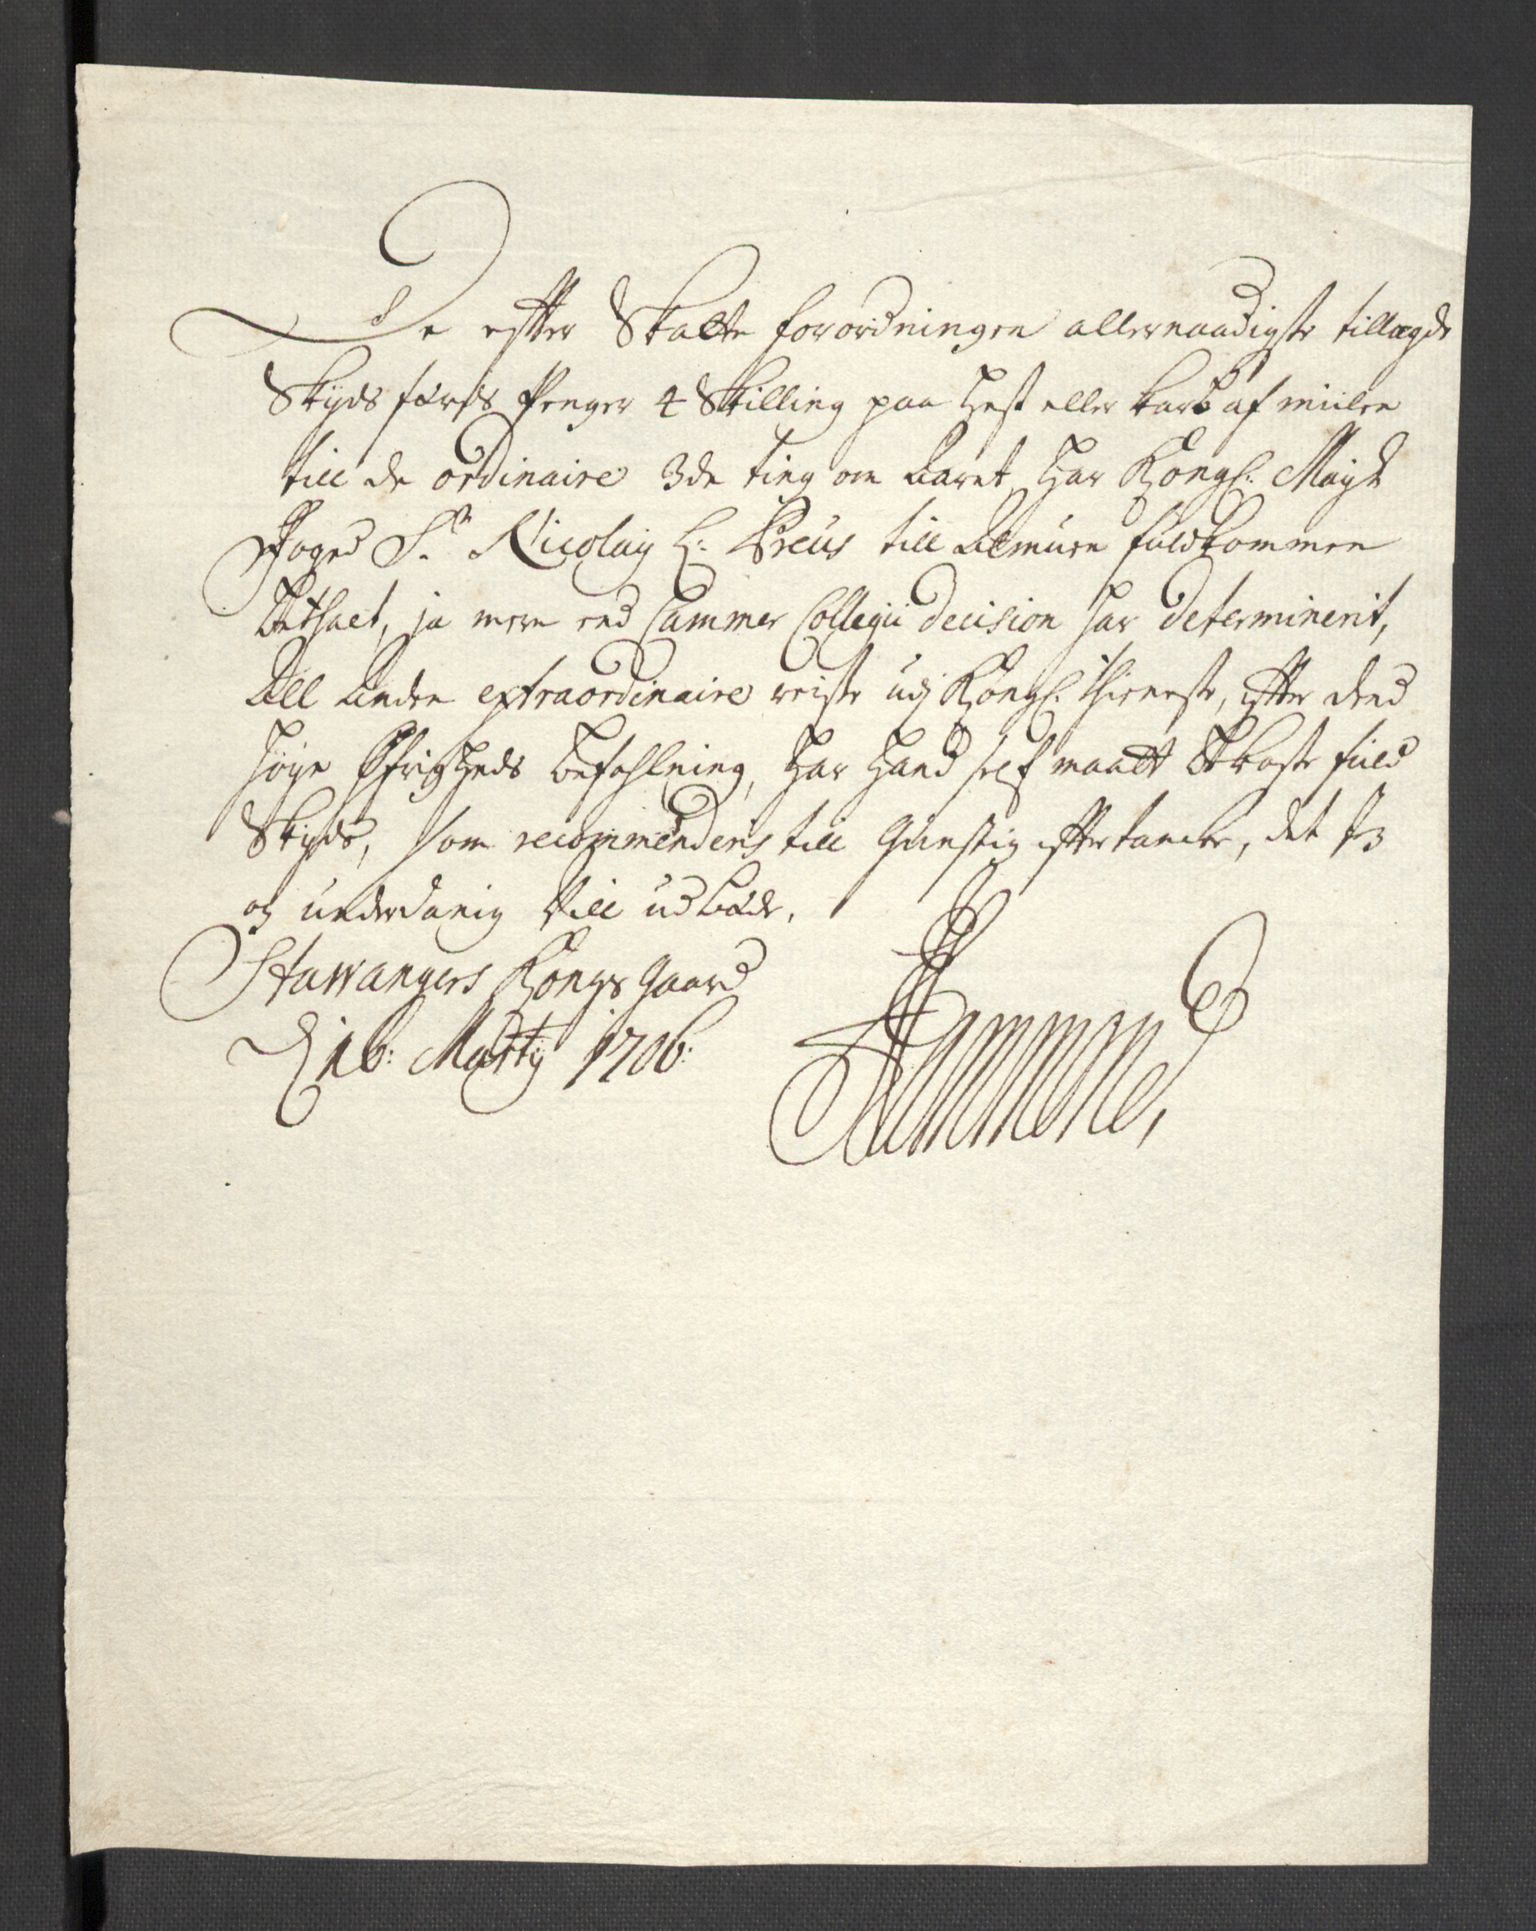 De efter Skatte forordningen allernaadigste tillagde
Skyds færds Penger 4 Skilling paa Hest eller karl af miilen
till de ordinaire 3de ting om Aaret, Har Kongl: Mayts
Foged Sr. Nicolay H: Preus till Almuen fuldkommen
Bethalt, ja mere end Cammer Collegii decision har determinerit,
All Anden extraordinaire reiste udj Kongl: thieneste, efter dend
høye Øfrigheds befahlning, Har Hand self maatt Bekoste fuld
Skyds, som recommenderis till Gunstig eftertancke, det
og underdanig Vill udbede.
Stawangers Kongs gaard
D 16: Marty 1706: